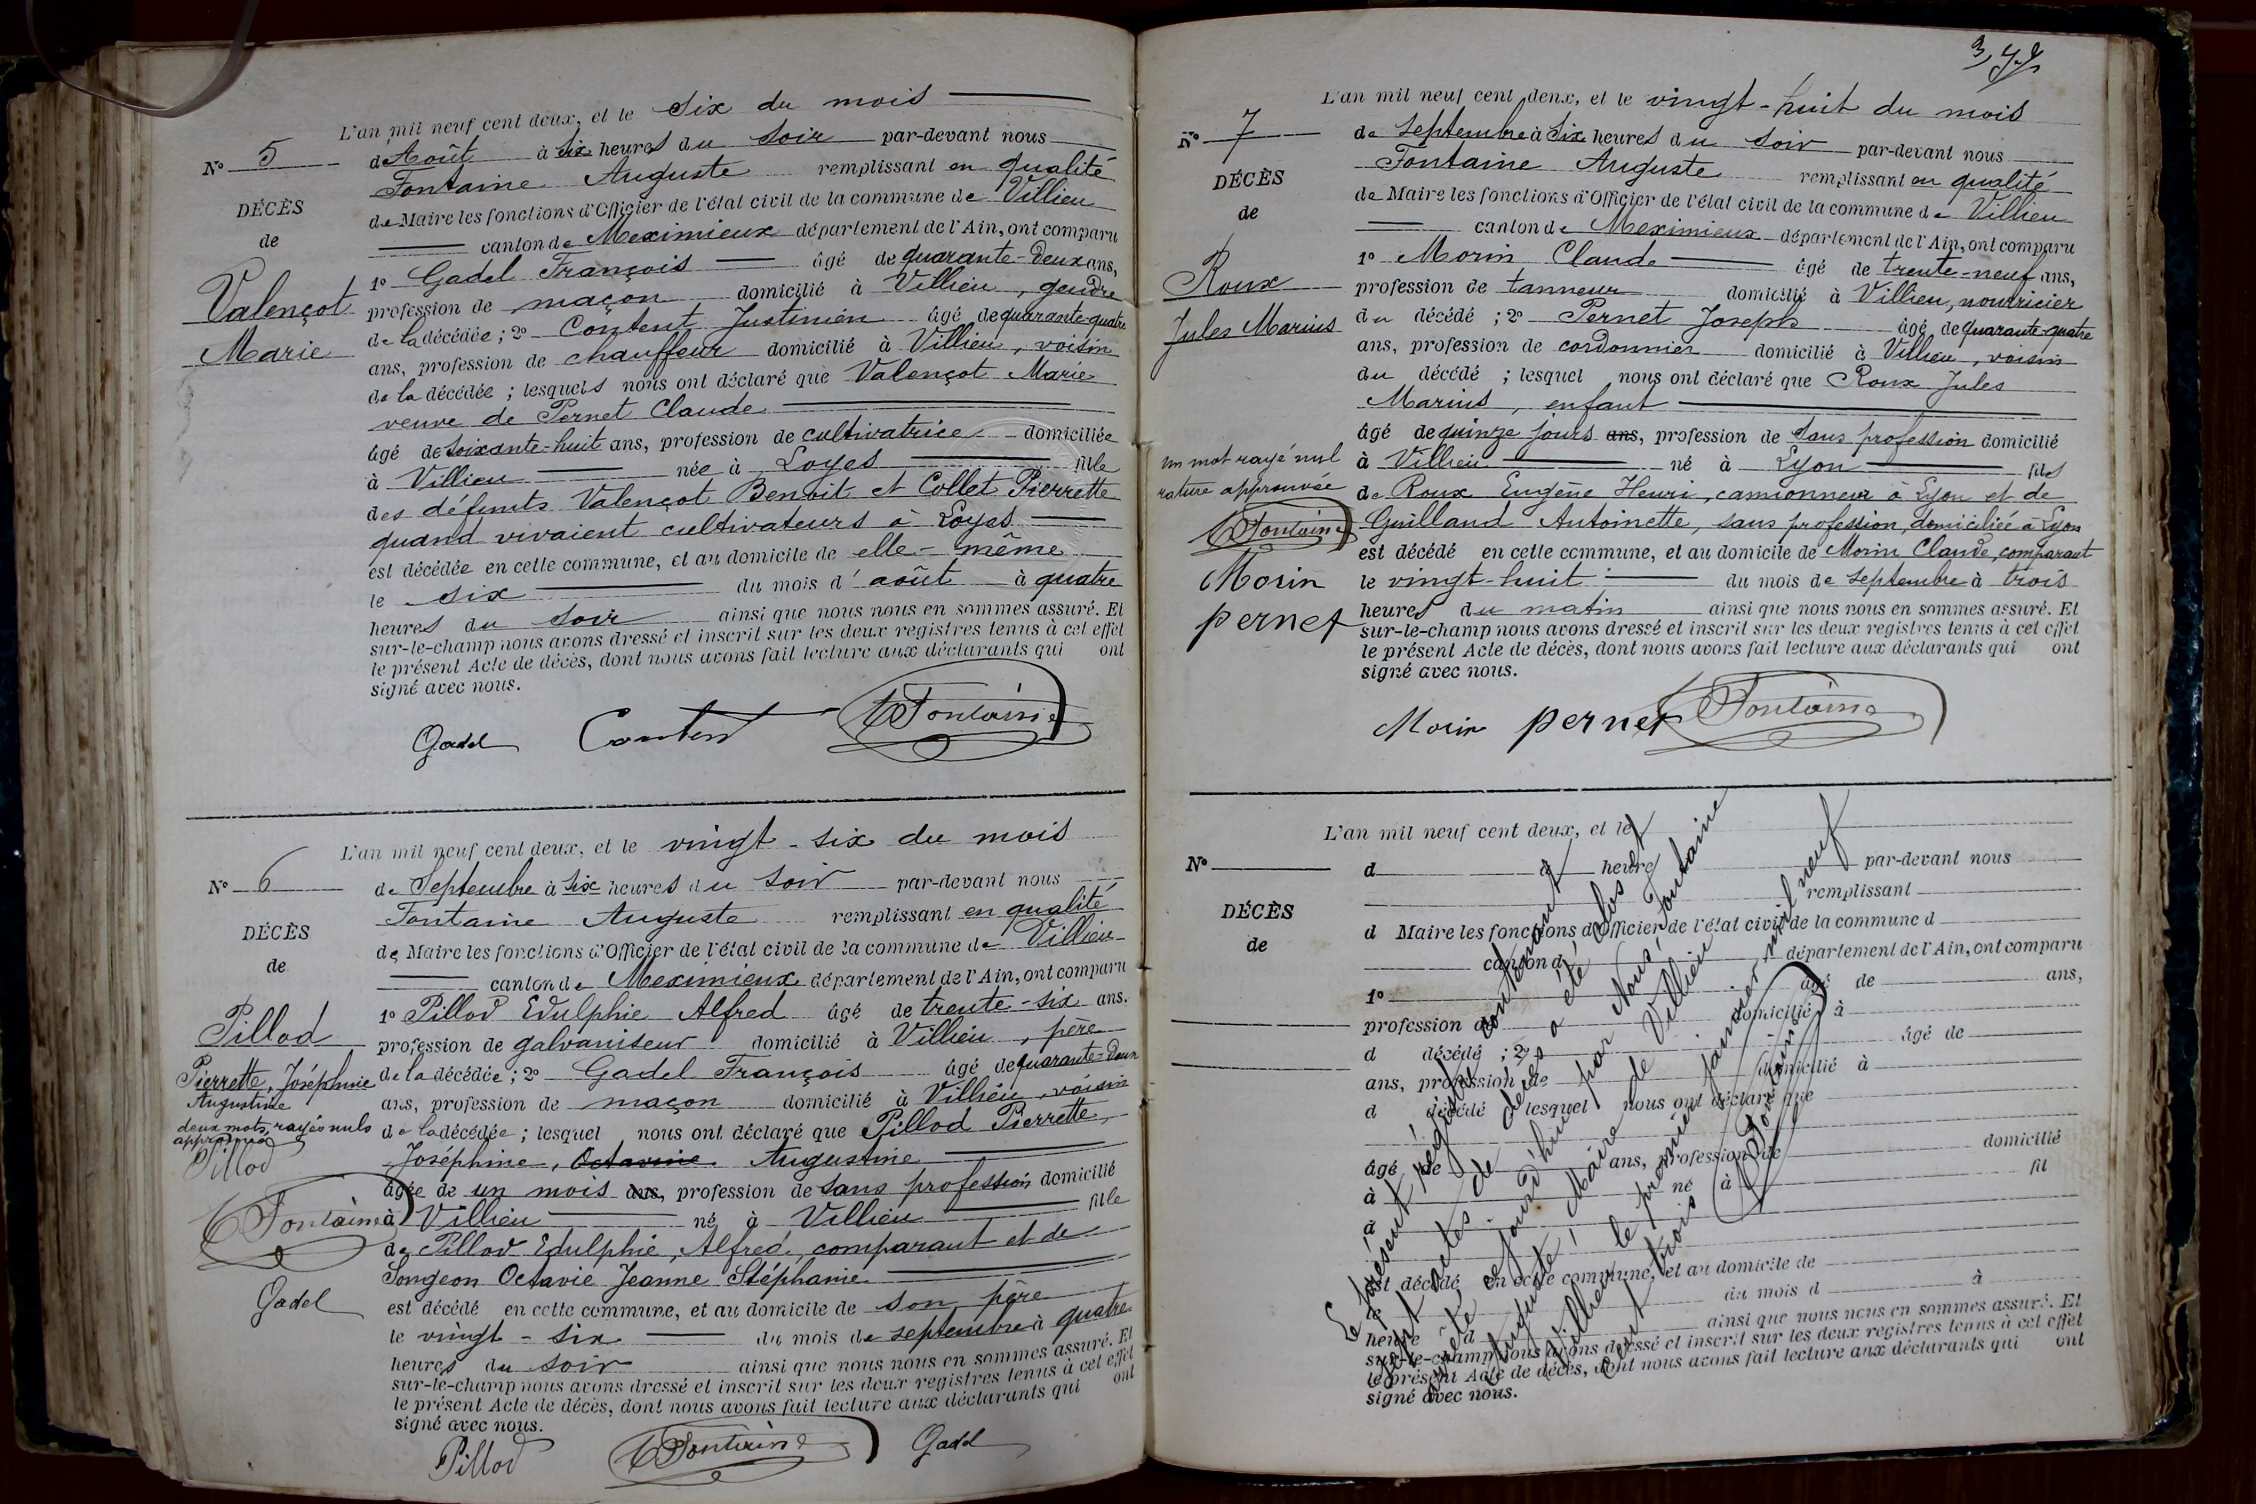 L'an mil neuf cent deux, et le six du mois
N° 5
d'Août à six heures du soir par-devant nous
Fontaine Auguste remplissant en qualité
DÉCÈS
de Maire les fonctions d'Officier de l'état civil de la commune de Villieu
de
canton de Meximieux département de l'Ain, ont comparu
1° Gadel François âgé de quarante-deux ans,
Valençot
profession de maçon, domicilié à Villieu, gendre
de la décédée ; 2° Content Justinien âgé de quarante-quatre
Marie
ans, profession de chauffeur domicilié à Villieu, voisin
de la décédée ; lesquels nous ont déclaré que Valençot Marie
veuve de Pernet Claude
âgé de soixante-huit ans, profession de cultivatrice domiciliée
à Villieu née à Loyes fille
des défunts Valençot Benoit et Collet Pierrette
quand vivaient cultivateurs à Loyes
est décédée en cette commune, et au domicile de elle-même
le six du mois d'août à quatre
heures du soir ainsi que nous nous en sommes assuré. Et
sur-le-champ nous avons dressé et inscrit sur les deux registres tenus à cet effet
le présent Acte de décès, dont nous avons fait lecture aux déclarants qui ont
signé avec nous.
Gadel Content Fontaine
L'an mil neuf cent deux, et le vingt-six du mois
N° 6
de Septembre à six heures du soir par-devant nous
Fontaine Auguste remplissant en qualité
DÉCÈS
de Maire les fonctions d'Officier de l'état civil de la commune de Villieu
de
canton de Meximieux département de l'Ain, ont comparu
1° Pillod Edulphie Alfred âgé de trente-six ans.
Pillod
profession de galvaniseur domicilié à Villieu, père
Pierrette, Joséphine
Augustine
de la décédée ; 2° Gadel François âgé de quarante-deux
ans, profession de maçon domicilié à Villieu, voisin
deux mots rayés nuls
approuvé
de la décédée ; lesquel nous ont déclaré que Pillod Pierrette,
Pillod
Joséphine, Octavine Augustine
âgée de un mois ans, profession de sans profession domicilié
Fontaine
à Villieu né à Villieu fille
de Pillod Edulphie, Alfred, comparant et de
Songeon Octavie Jeanne Stéphanie
Gadel
est décédé en cette commune, et au domicile de son père
le vingt-six du mois de septembre à quatre
heures du soir ainsi que nous nous en sommes assuré. Et
sur-le-champ nous avons dressé et inscrit sur les deux registres tenus à cet effet
le présent Acte de décès, dont nous avons fait lecture aux déclarants qui ont
signé avec nous.
Pillod Fontaine Gadel
L'an mil neuf cent deux, et le vingt-huit du mois
N° 7
de Septembre à six heures du soir par-devant nous
Fontaine Auguste remplissant en qualité
DÉCÈS
de Maire les fonctions d'Officier de l'état civil de la commune de Villieu
de
canton de Meximieux département de l'Ain, ont comparu
1° Morin Claude âgé de trente-neuf ans,
Roux
profession de tanneur domicilié à Villieu, nourricier
Jules Marius
du décédé ; 2° Pernet Joseph âgé de quarante-quatre
ans, profession de cordonnier domicilié à Villieu, voisin
du décédé ; lesquel nous ont déclaré que Roux Jules
Marius, enfant
âgé de quinze jours ans, profession de sans profession domicilié
un mot rayé nul
à Villieu né à Lyon fils
rature approuvée
de Roux Eugène Henri, camionneur à Lyon et de
Fontaine
Guilland Antoinette, sans profession, domiciliée à Lyon
est décédé en cette commune, et au domicile de Morin Claude, comparant
Morin
le vingt-huit du mois de septembre à trois
pernet
heures du matin ainsi que nous nous en sommes assuré. Et
sur-le-champ nous avons dressé et inscrit sur les deux registres tenus à cet effet
le présent Acte de décès, dont nous avons fait lecture aux déclarants qui ont
signé avec nous.
Morin pernet Fontaine
L'an mil neuf cent deux, et le
N°
d à heure par-devant nous
remplissant
DÉCÈS
d Maire les fonctions d'Officier de l'état civil de la commune d
de
canton d département de l'Ain, ont comparu
1° âgé de ans,
profession d domicilié à
d décédé ; 2° âgé de
ans, profession de domicilié à
d décédé lesquel nous ont déclaré que
âgé de ans, profession de domicilié
à né à fil
d
est décédé en cette commune, et au domicile de
le du mois d à
heure d ainsi que nous nous en sommes assuré. Et
sur-le-champ nous avons dressé et inscrit sur les deux registres tenus à cet effet
le présent Acte de décès, dont nous avons fait lecture aux déclarants qui ont
signé avec nous.
Le présent régistre contenant
sept actes de décès a été clos et
arrêté ce jourd'hui par Nous, Fontaine
Auguste, Maire de Villieu
Villieu le premier janvier mil neuf
cent trois
Fontaine